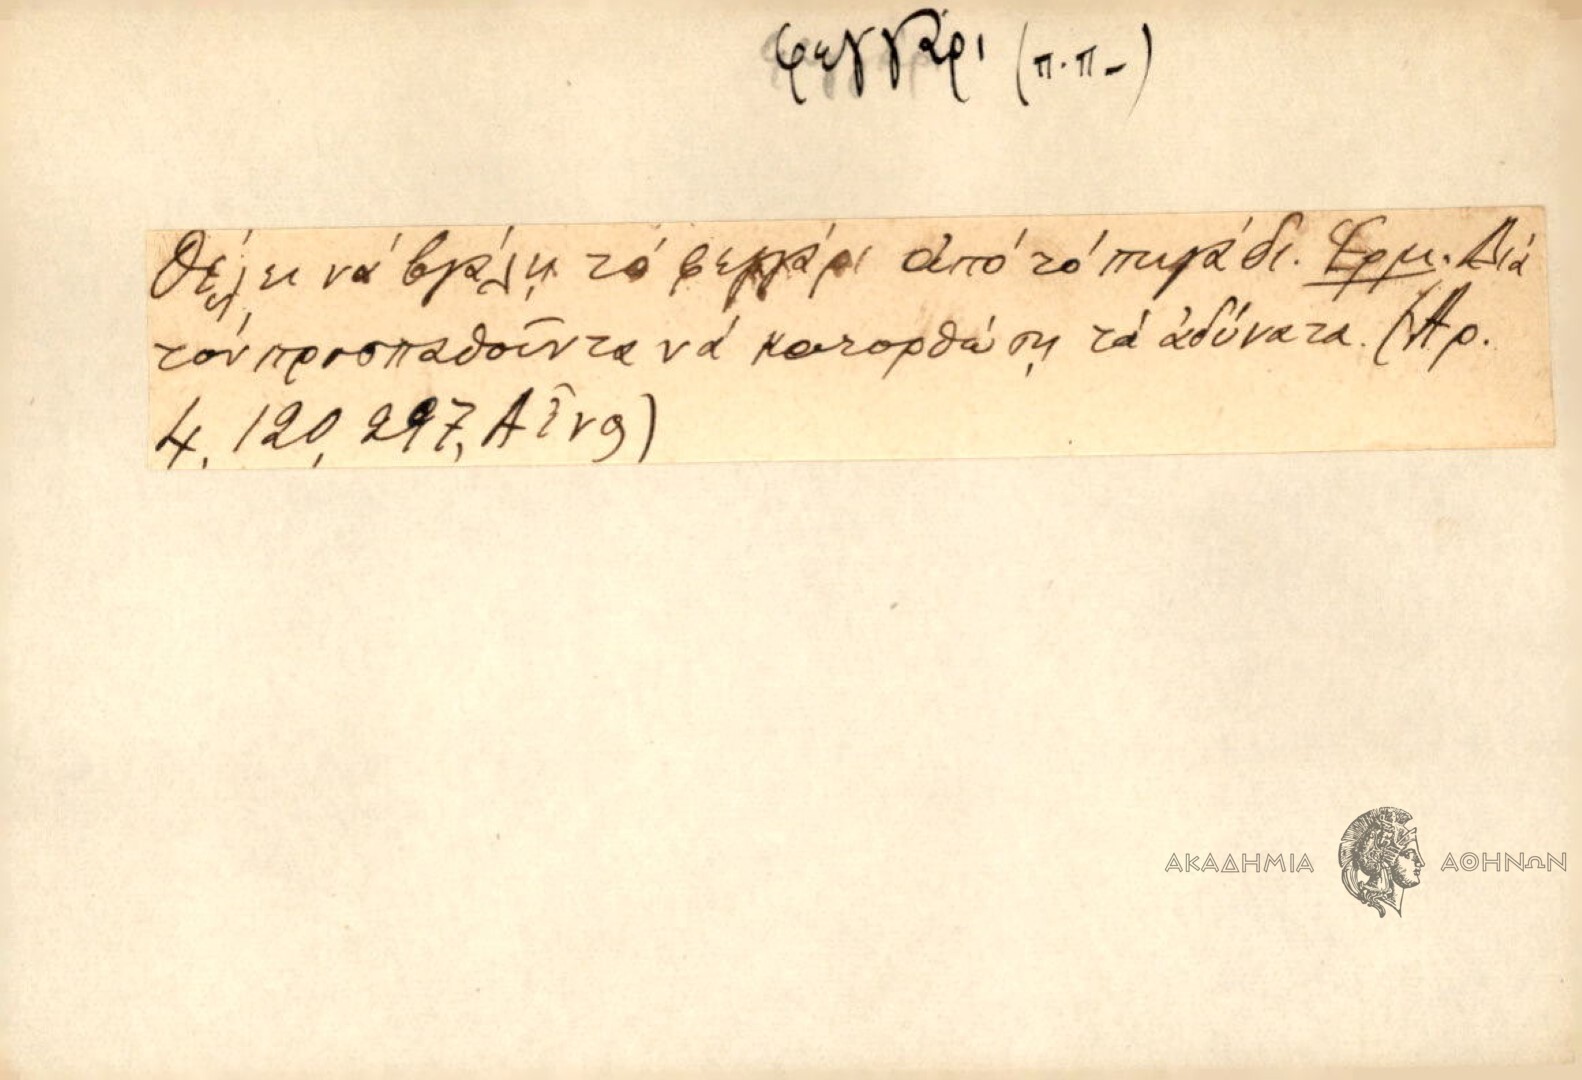 φεγγάρι (π.π-)
Θέλει νά βγάλῃ τό φεγγάρι ἀπό τό πηγάδι. Ἑρμ. Διά
τόν προσπαθοῦντα νά κατορθώσῃ τά ἀδύνατα. (Ἀρ.
4, 120, 297, Αἶνο)
ΑΚΑΔΗΜΙΑ ΑΘΗΝΩΝ